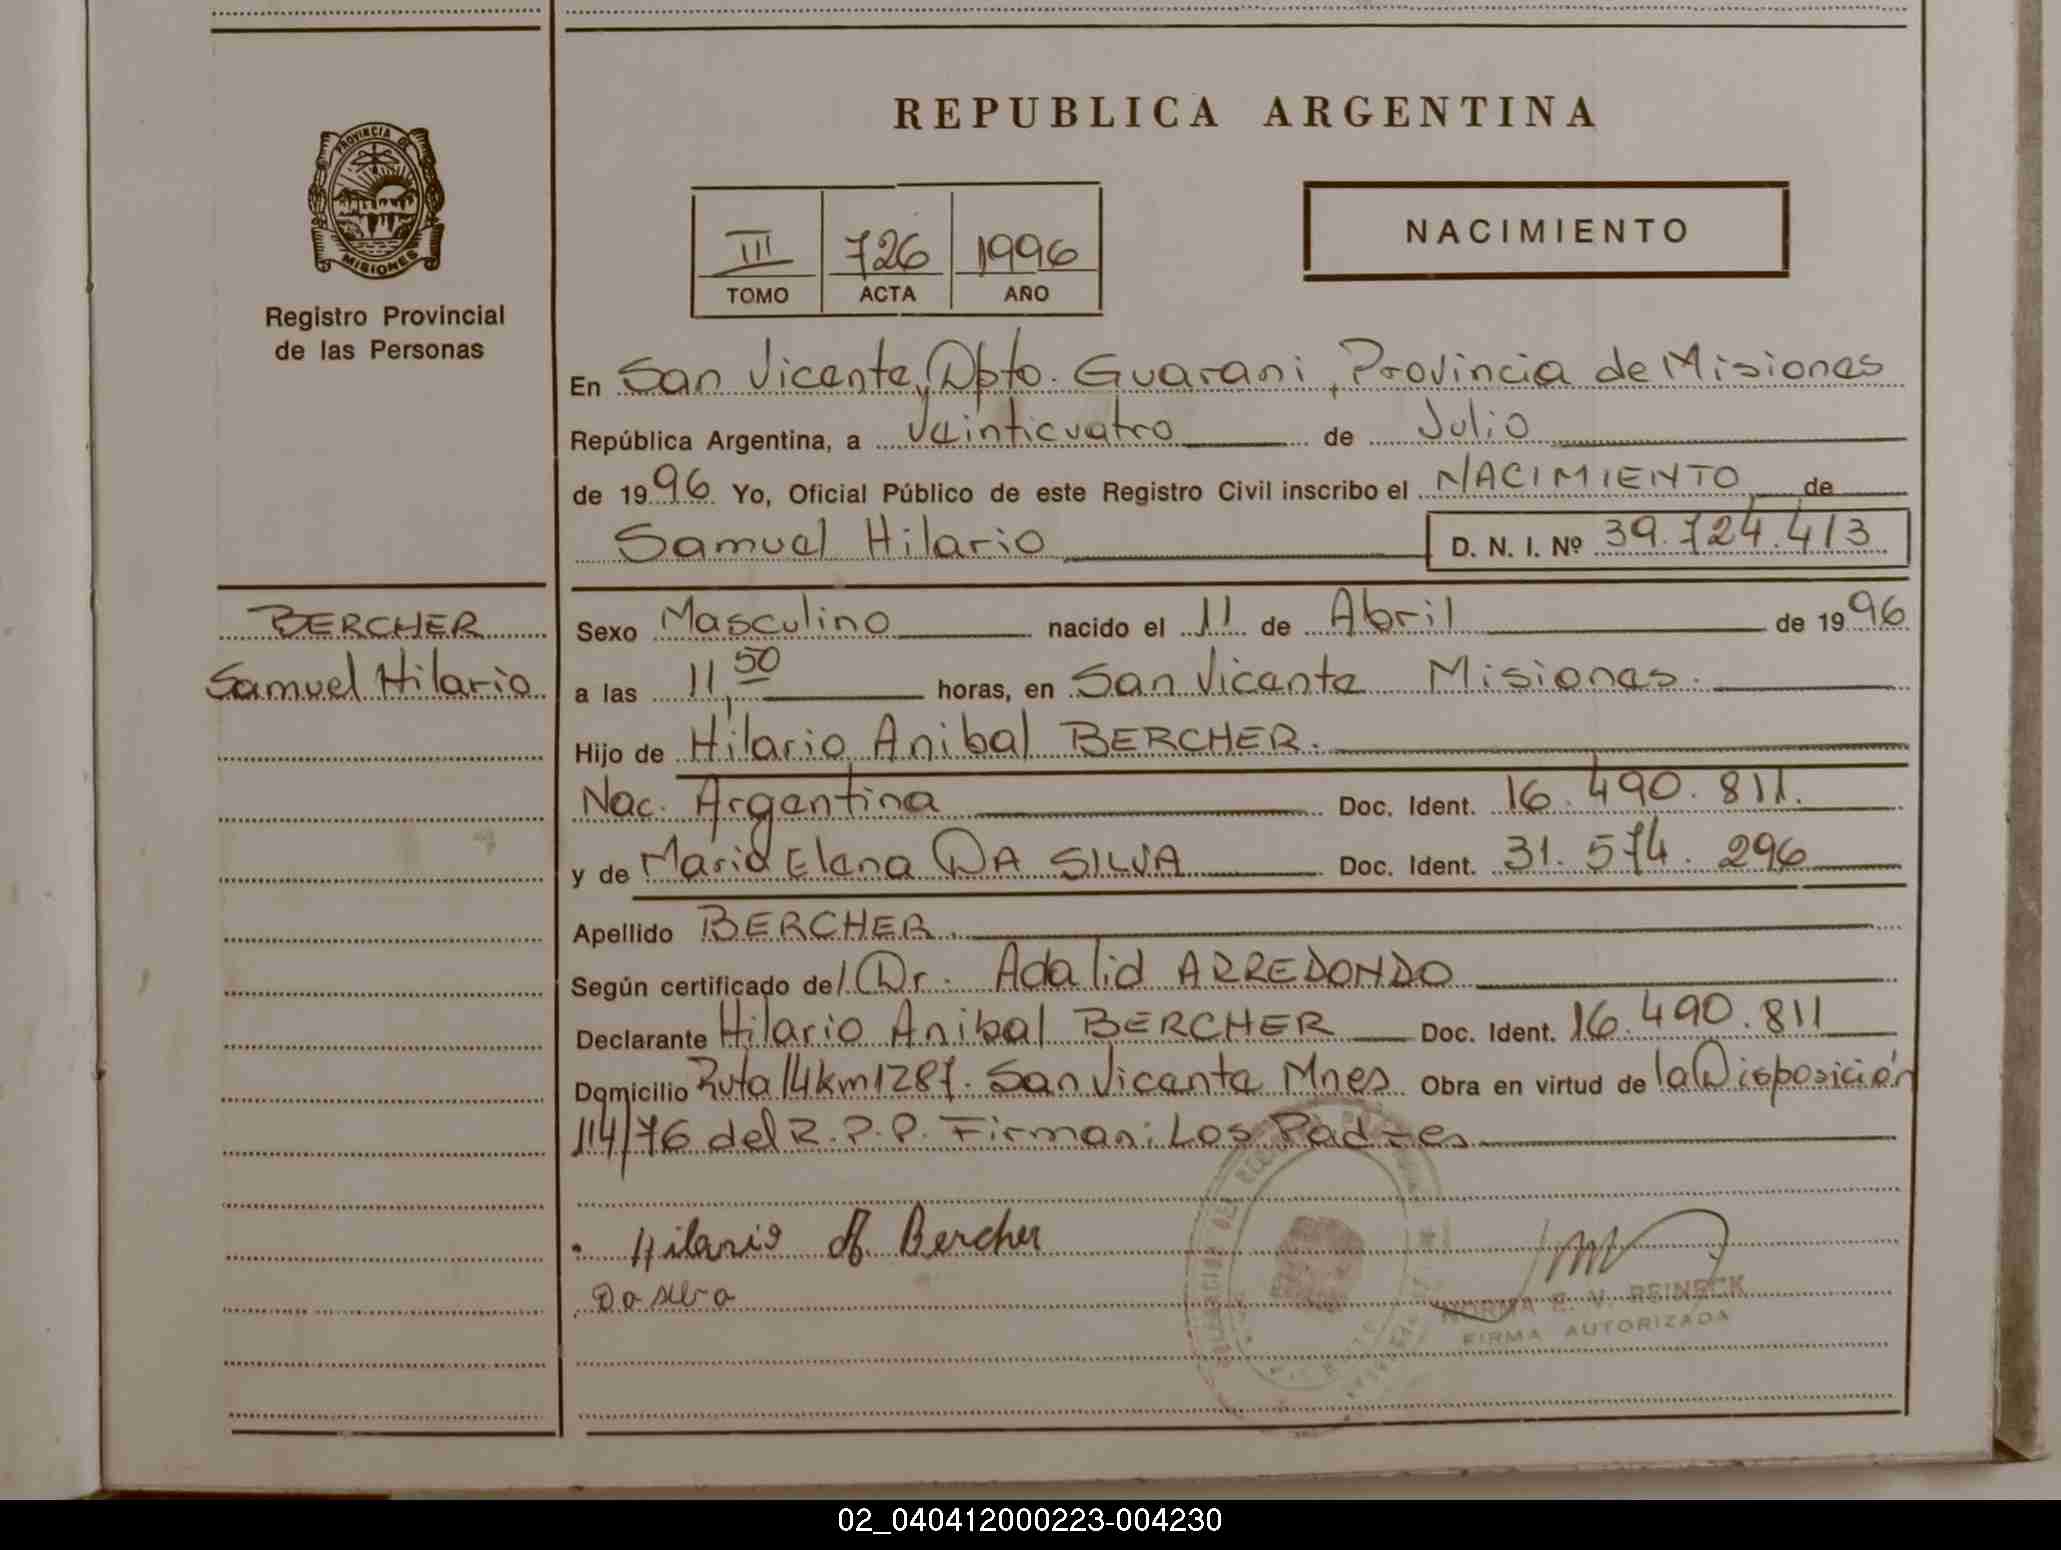 REPUBLICA ARGENTINA
PROVINCIA DE
MISIONES
Registro Provincial
de las Personas
III 726 1996
TOMO ACTA AÑO
NACIMIENTO
En San Vicente, Dpto. Guarani, Provincia de Misiones
República Argentina, a Veinticuatro de Julio
de 1996 Yo, Oficial Público de este Registro Civil inscribo el NACIMIENTO de
Samuel Hilario D. N. I. Nº 39.724.413
BERCHER
Samuel Hilario
Sexo Masculino nacido el 11 de Abril de 1996
a las 11,50 horas, en San Vicente Misiones.
Hijo de Hilario Anibal BERCHER.
Nac. Argentina Doc. Ident. 16.490.811.
y de Maria Elena DA SILVA Doc. Ident. 31.574.296
Apellido BERCHER.
Según certificado del Dr. Adalid ARREDONDO
Declarante Hilario Anibal BERCHER Doc. Ident. 16.490.811
Domicilio Ruta 14 km 1287. San Vicente Mnes Obra en virtud de la Disposición
114/76 del R.P.P. Firman: Los Padres
Hilario A Bercher
Da silva
NORMA E. V. REINECK
FIRMA AUTORIZADA
02_040412000223-004230